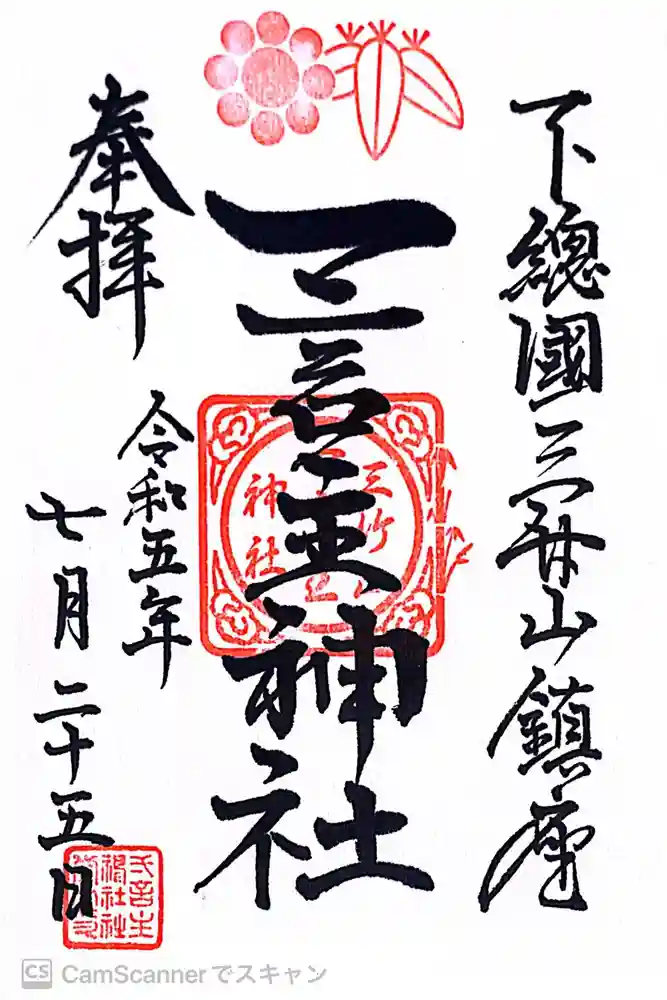 下總國三竹山鎮座
一言主神社
奉拝
令和五年
七月二十五日
三竹山
神社
CS CamScannerでスキャン